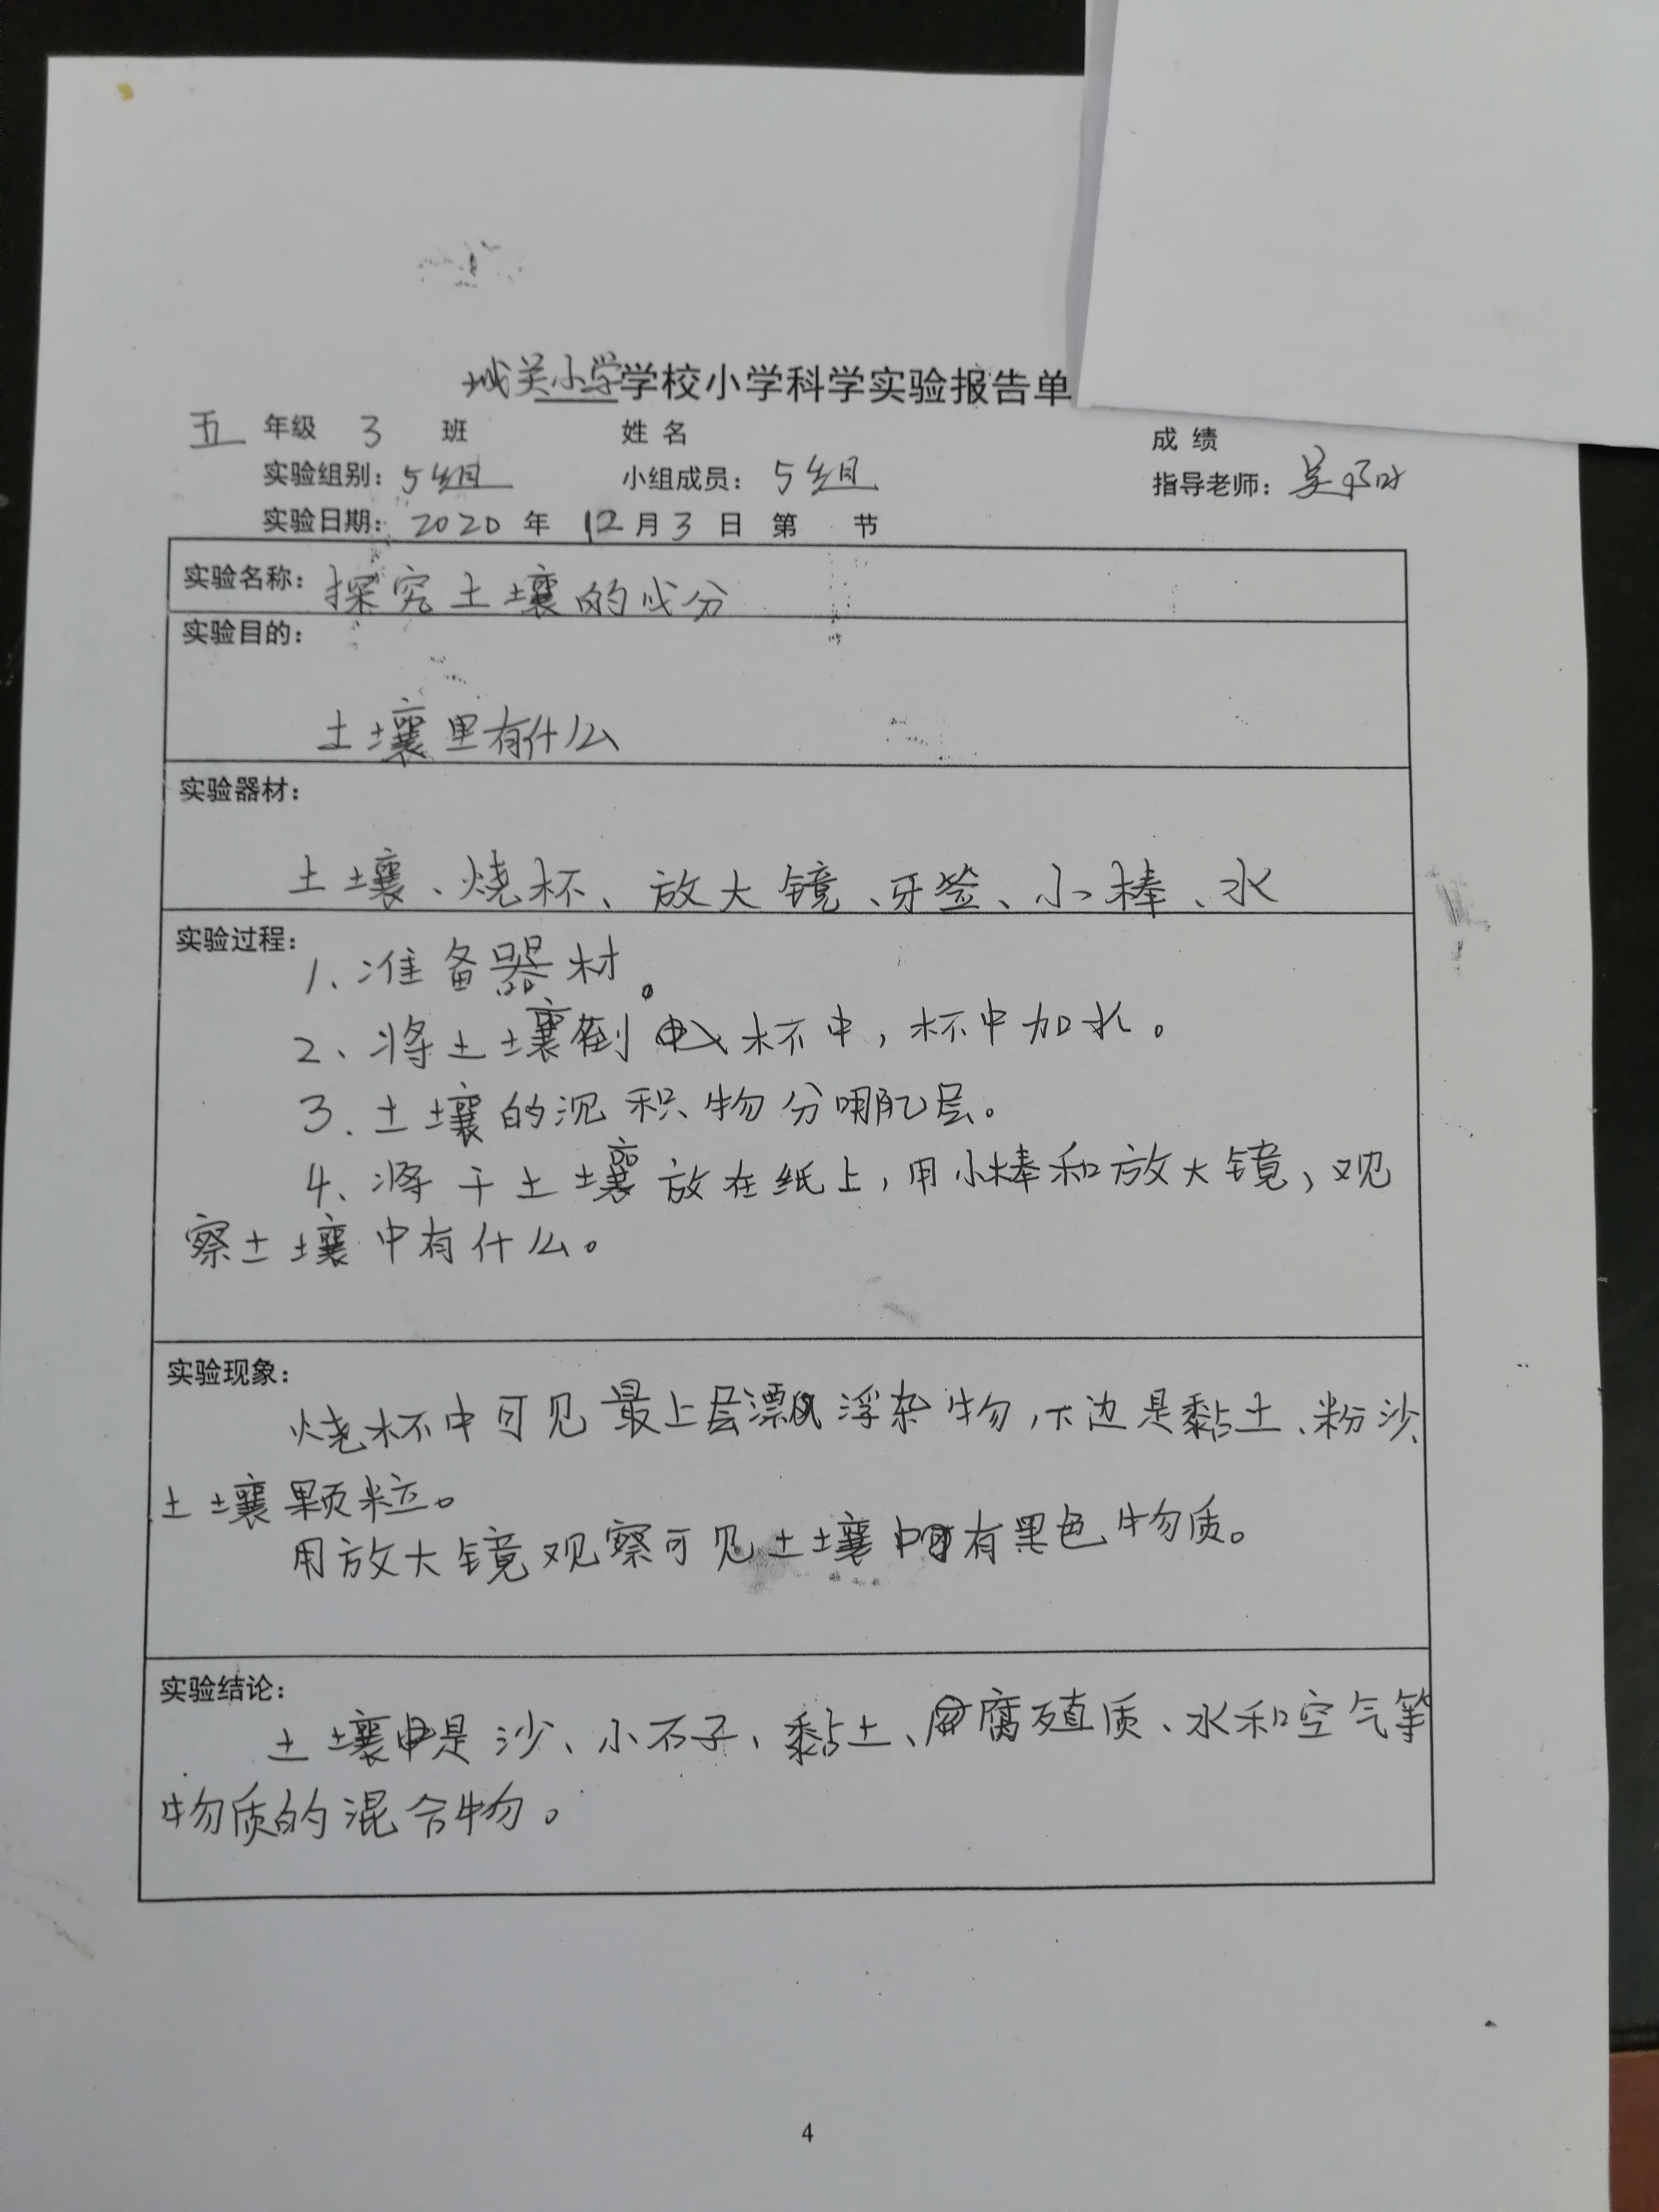 城关小学学校小学科学实验报告单
五 年级 3 班 姓 名 成 绩
实验组别：5组 小组成员：5组 指导老师：吴
实验日期：2020 年 12 月 3 日 第 节
实验名称：探究土壤的成分
实验目的：
土壤里有什么
实验器材：
土壤、烧杯、放大镜、牙签、小棒、水
实验过程：
1、准备器材。
2、将土壤倒入杯中，杯中加水。
3、土壤的沉积物分明几层。
4、将干土壤放在纸上，用小棒和放大镜，观
察土壤中有什么。
实验现象：
烧杯中可见最上层漂浮杂物，下边是黏土、粉沙、
土壤颗粒。
用放大镜观察可见土壤中有黑色物质。
实验结论：
土壤是沙、小石子、黏土、腐殖质、水和空气等
物质的混合物。
4